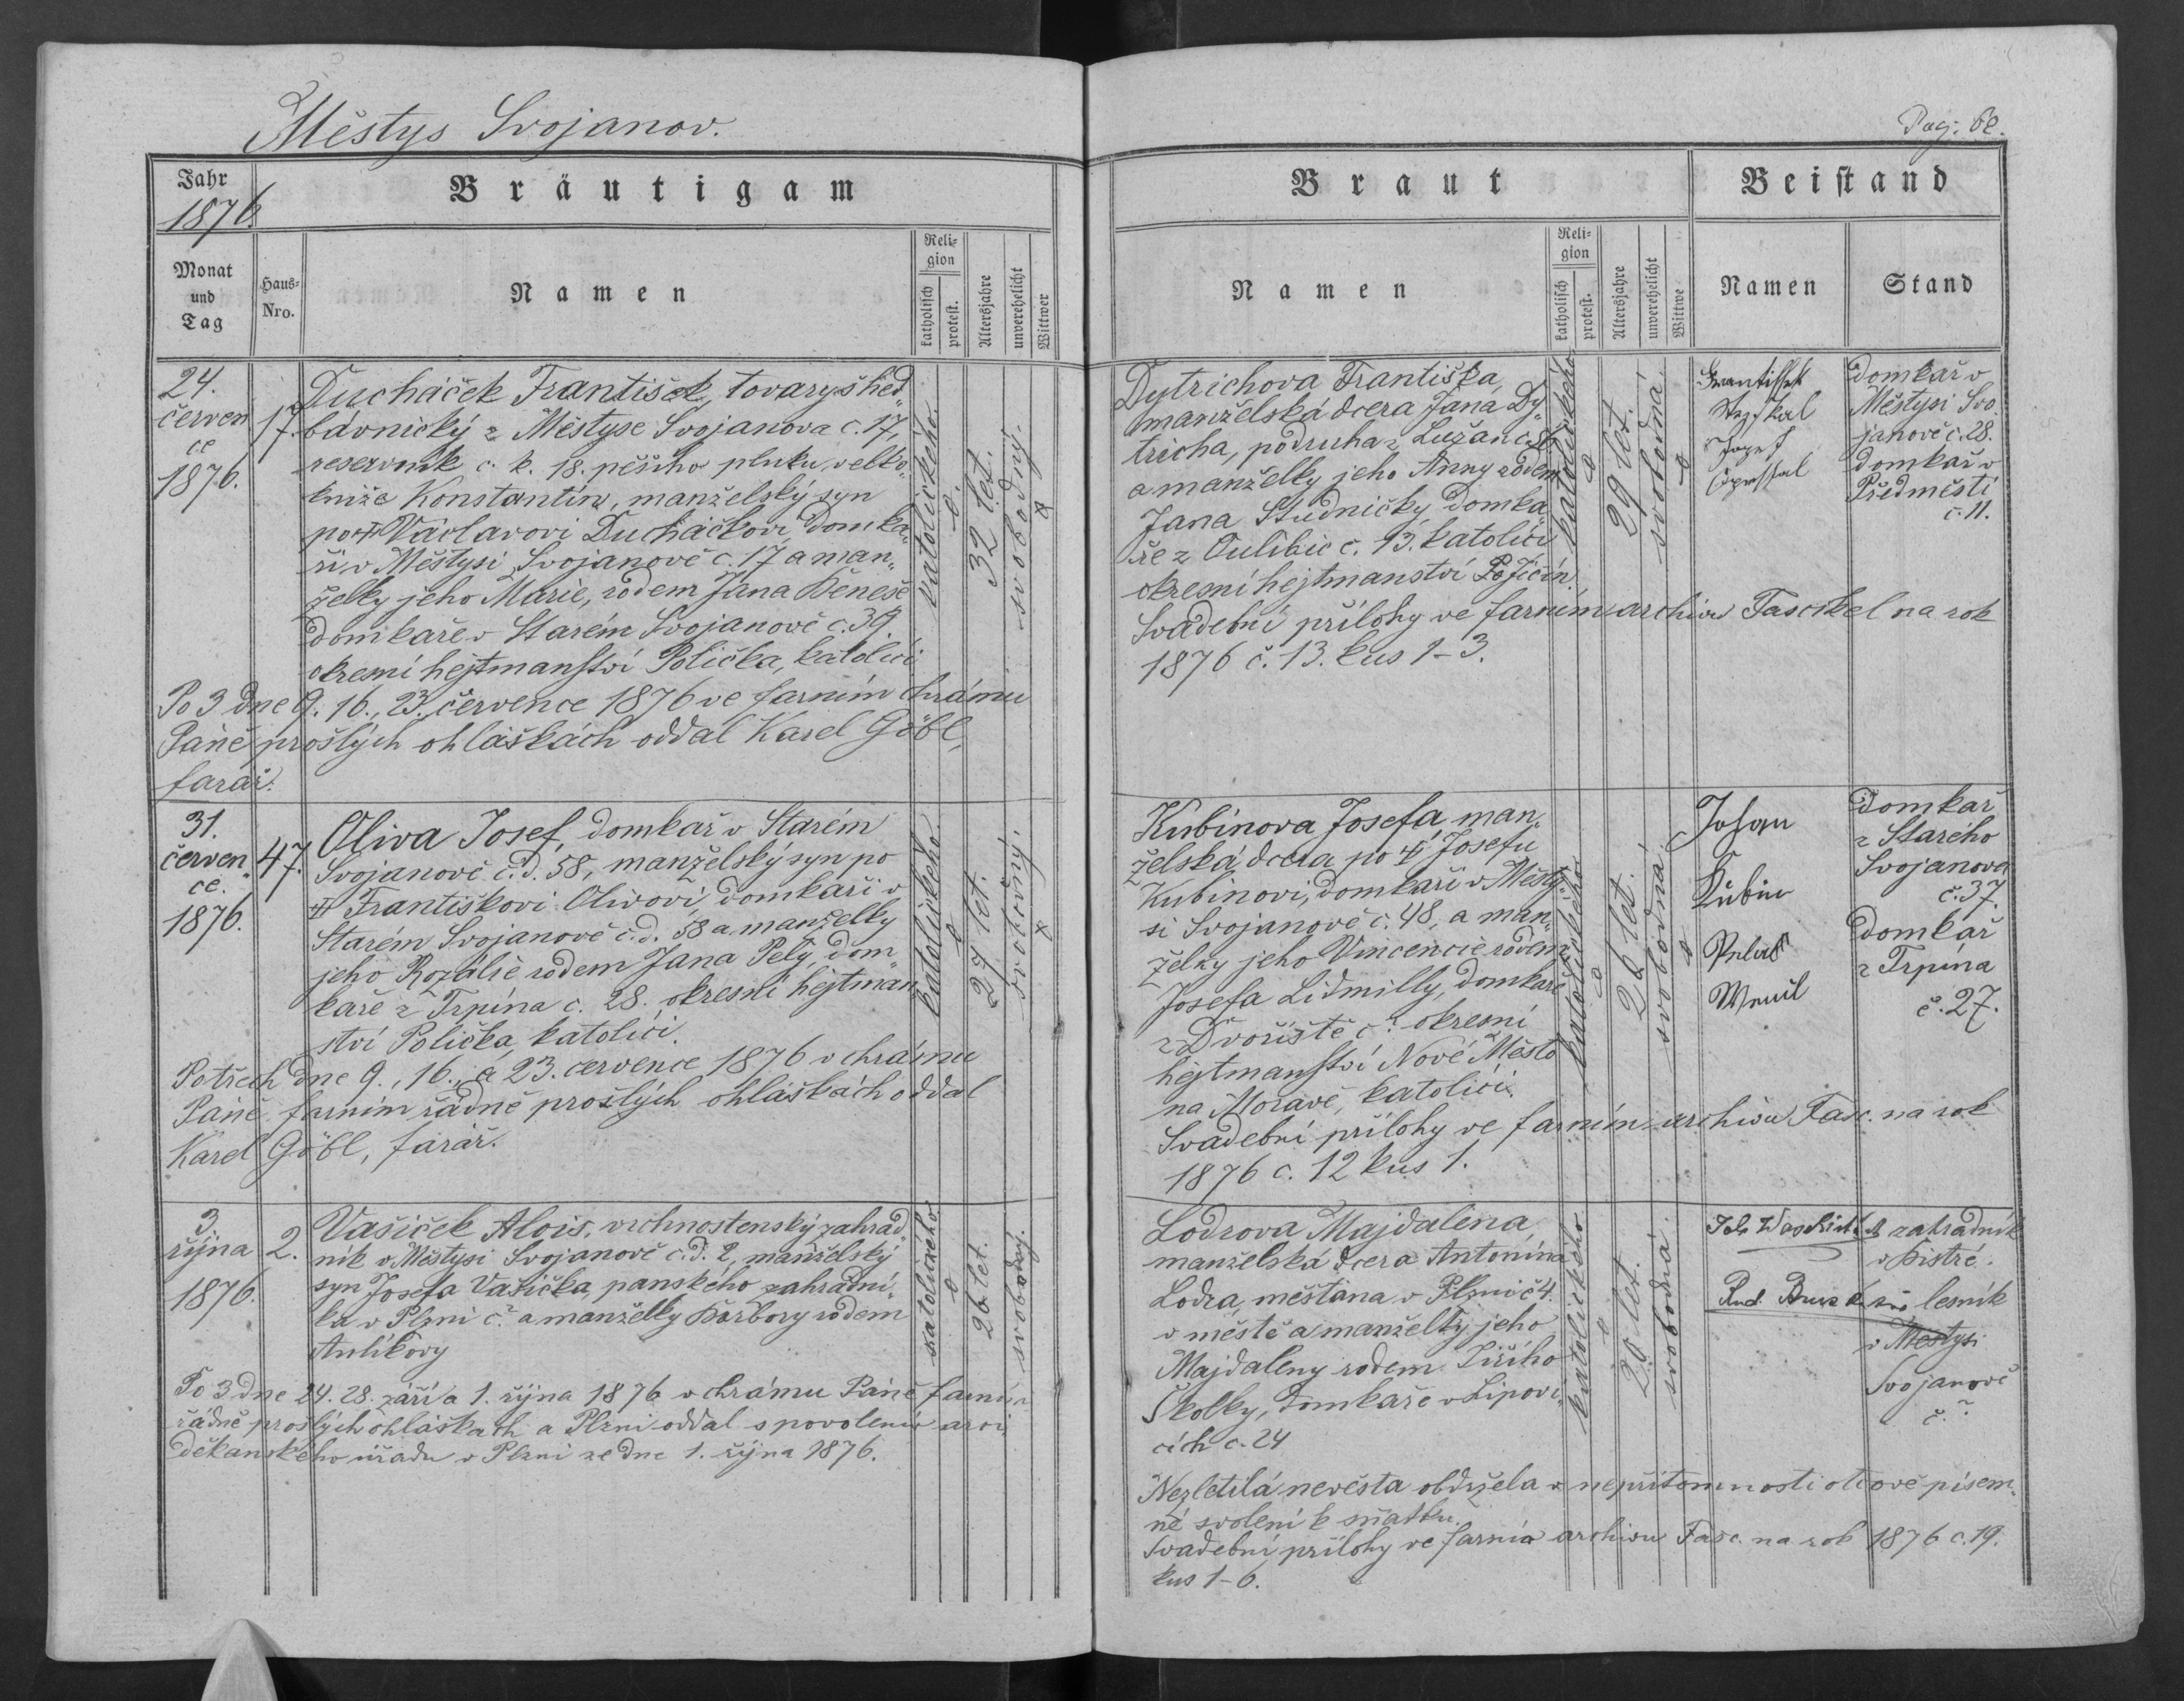 Městys Svojanov.
Pag: 62.
Jahr
1876.
Bräutigam
Monat
und
Tag
Haus-
Nro.
Namen
Reli-
gion
katholisch
protest.
Altersjahre
unverehelicht
Wittwer
24.
červen
ce
1876.
17.
Ducháček František, tovaryš hed„
bávnický z Městyse Svojanova č. 17,
reservník c. k. 18. pěšího pluku velko„
kníže Konstantin, manželský syn
po † Václavovi Ducháčkovi, domka„
ři v Městysi Svojanově č. 17 a man„
želky jeho Marie, rodem Jana Beneše
domkaře v Starém Svojanově č. 39
okresní hejtmanství Polička, katolíci
katolického.
0.
32 let.
svobodný.
0
Po 3 dne 9. 16., 23. července 1876 ve farním chrámu
Páně prošlých ohláškách oddal Karel Göbl,
farář.
31.
červen„
ce.
1876.
47.
Oliva Josef, domkař v Starém
Svojanově č.d. 58, manželský syn po
† Františkovi Olivovi, domkaři v
Starém Svojanově č.d. 58 a manželky
jeho Rozálie rodem Jana Pely, dom„
kaře z Trpína č. 28. okresní hejtman„
ství Polička, katolíci.
katolického.
0
27 let.
svobodný.
0
Po třech dne 9., 16., a 23. července 1876 v chrámu
Páně farním řádně prošlých ohláškách oddal
Karel Göbl, farář.
3.
října
1876.
2.
Vašiček Alois, vrchnostenský zahrad„
ník v Městysi Svojanově č.d. 2, manželský
syn Josefa Vašička, panského zahradní„
ka v Plzni č.? a manželky Barbory rodem
katolického
0
26 let.
svobodný.
Po 3 dne 24. 28. září a 1. října 1876 v chrámu Páně farním
řádně prošlých ohláškach a Plzni oddal s povolením arci
děkanského úřadu v Plzni ze dne 1. října 1876.
Braut
Beistand
Namen
Reli-
gion
katholisch
protest.
Altersjahre
unverehelicht
Wittwe
Namen
Stand
Dytrichova Františka,
manželská dcera Jana Dy„
tricha, podruha z Lužan č. 81
a manželky jeho Anny rodem
Jana Studničky, domka„
ře z Oulibic č. 13. katolíci
okresní hejtmanství Jičín.
katolického
0
29 let.
svobodná.
0
František
Josef
domkař v
Městysi Svo„
janově č. 28.
domkař v
Předměstí
č. 11.
Svadební přílohy ve farním archivu Fascikel na rok
1876 č. 13. kus 1–3.
Kubinova Josefa, man„
želská dcera po † Josefu
Kubinovi, domkaři v Městy„
si Svojanově č. 48, a man„
želky jeho Vincencie rodem
Josefa Lidmilly, domkaře
z Dvořiště č.? okresní
hejtmanství Nové Město
na Moravě, katolíci.
katolického
0
26 let.
svobodná.
0
Johan
Kubin
domkař
z Starého
Svojanova
č. 37.
domkář
z Trpína
č. 27.
Svadební přílohy ve farním archivu Fasc. na rok
1876 č. 12 kus 1.
Lodrova Majdalena,
manželská dcera Antonína
Lodra, měštana v Plzni č 4.
v městě a manželky jeho
Majdaleny rodem Jiřího
Školky, domkaře v Lipovi„
cích č. 24
katolického
0
20 let.
svobodná.
zahradník
v Bistré.
lesník
v Městysi
Svojanově
č. ?
Nezletilá nevěsta obdržela v nepřítomnosti otcově písem„
né svolení k sňatku.
Svadební přílohy ve farním archivu Fasc. na rok 1876 č. 19.
kus 1–6.